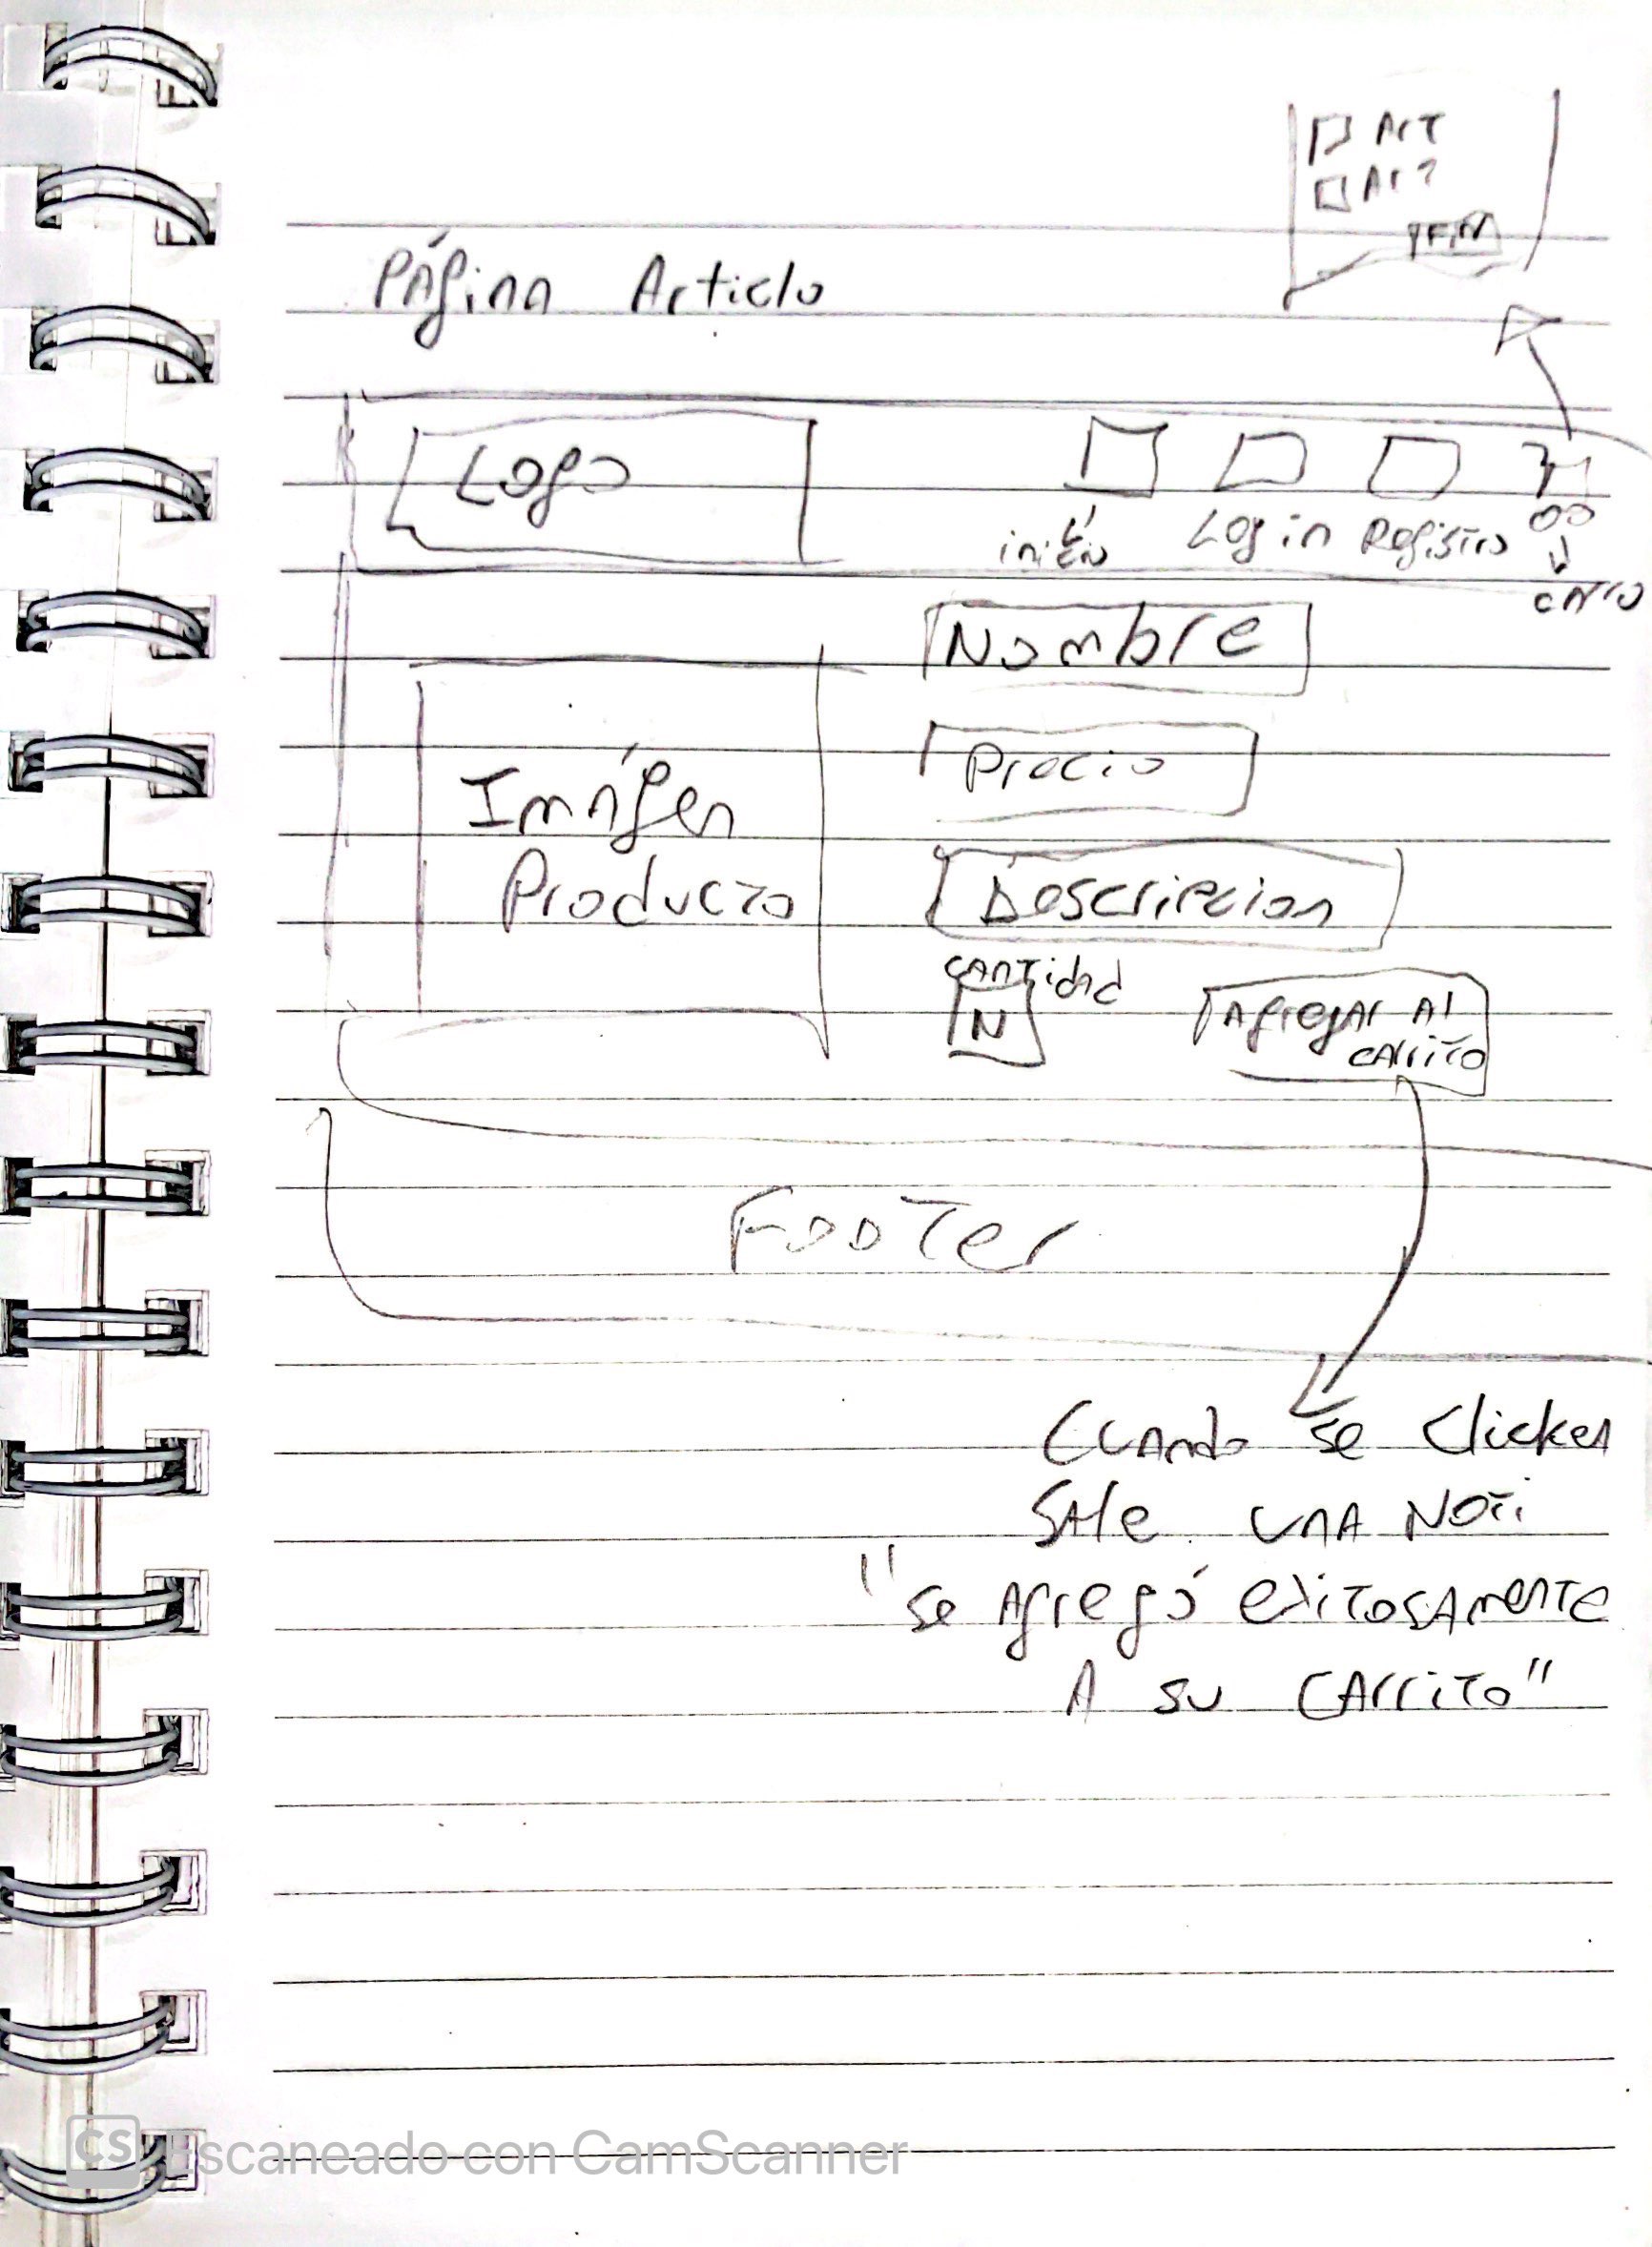 Art
Art
Página Articlo
Logo
inicio
Login
Registro
carro
Nombre
Precio
Imágen
Producto
Descripcion
Cantidad
N
Agregar al
carrito
Footer
Cuando se clickea
sale una noti
"se agregó exitosamente
a su carrito"
CS Escaneado con CamScanner